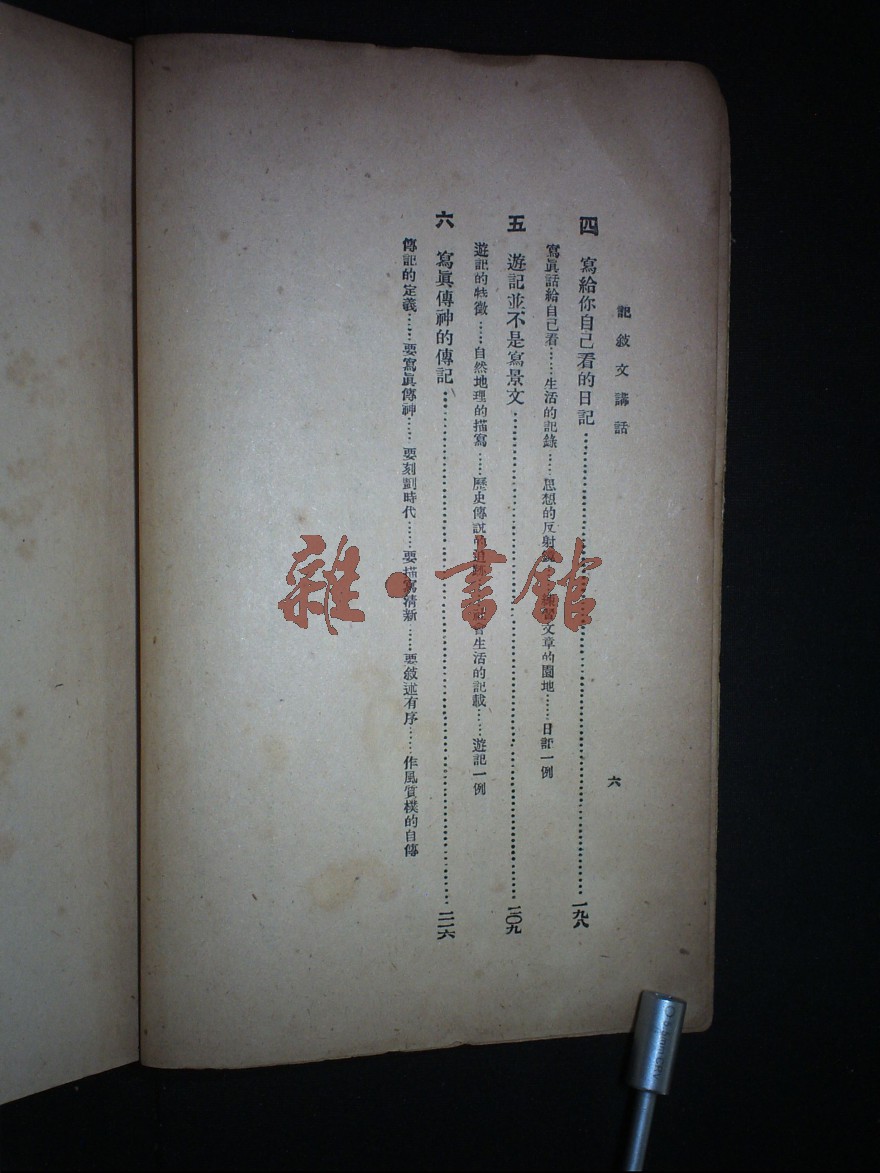 記敍文講話
六
四 寫給你自己看的日記……一九八
寫眞話給自己看……生活的記錄……思想的反射鏡……練習文章的園地……日記一例
五 遊記並不是寫景文……二〇九
遊記的特徵……自然地理的描寫……歷史傳說的追述……社會生活的記載……遊記一例
六 寫眞傳神的傳記……二一六
傳記的定義……要寫眞傳神……要刻劃時代……要描寫清新……要敍述有序……作風質樸的自傳
雜·書館